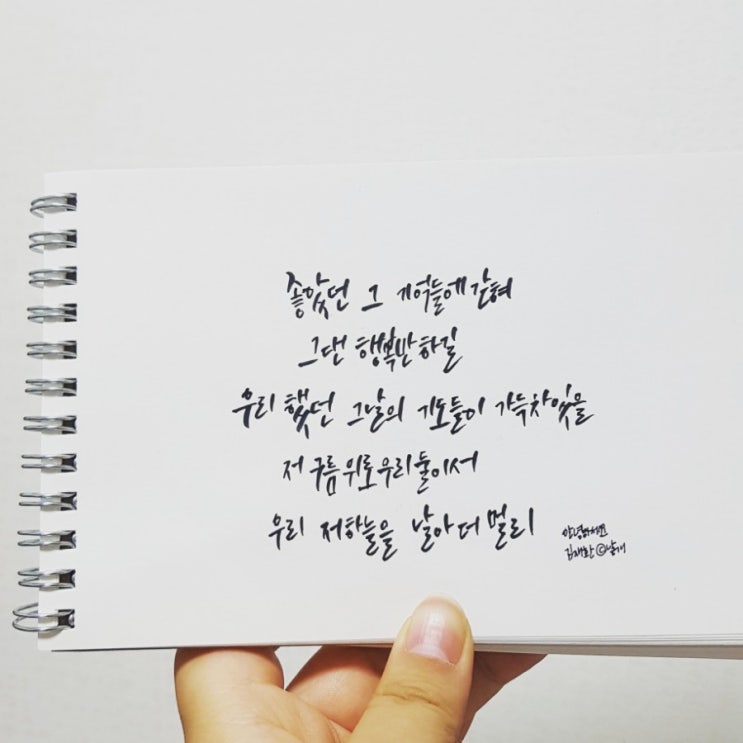 좋았던 그 기억들에 갇혀
그댄 행복만하길
우리 했던 그날의 기도들이 가득차있을
저 구름위로 우리 둘이서
우리 저하늘을 날아 더 멀리
안녕하세요
김재환 ©날개